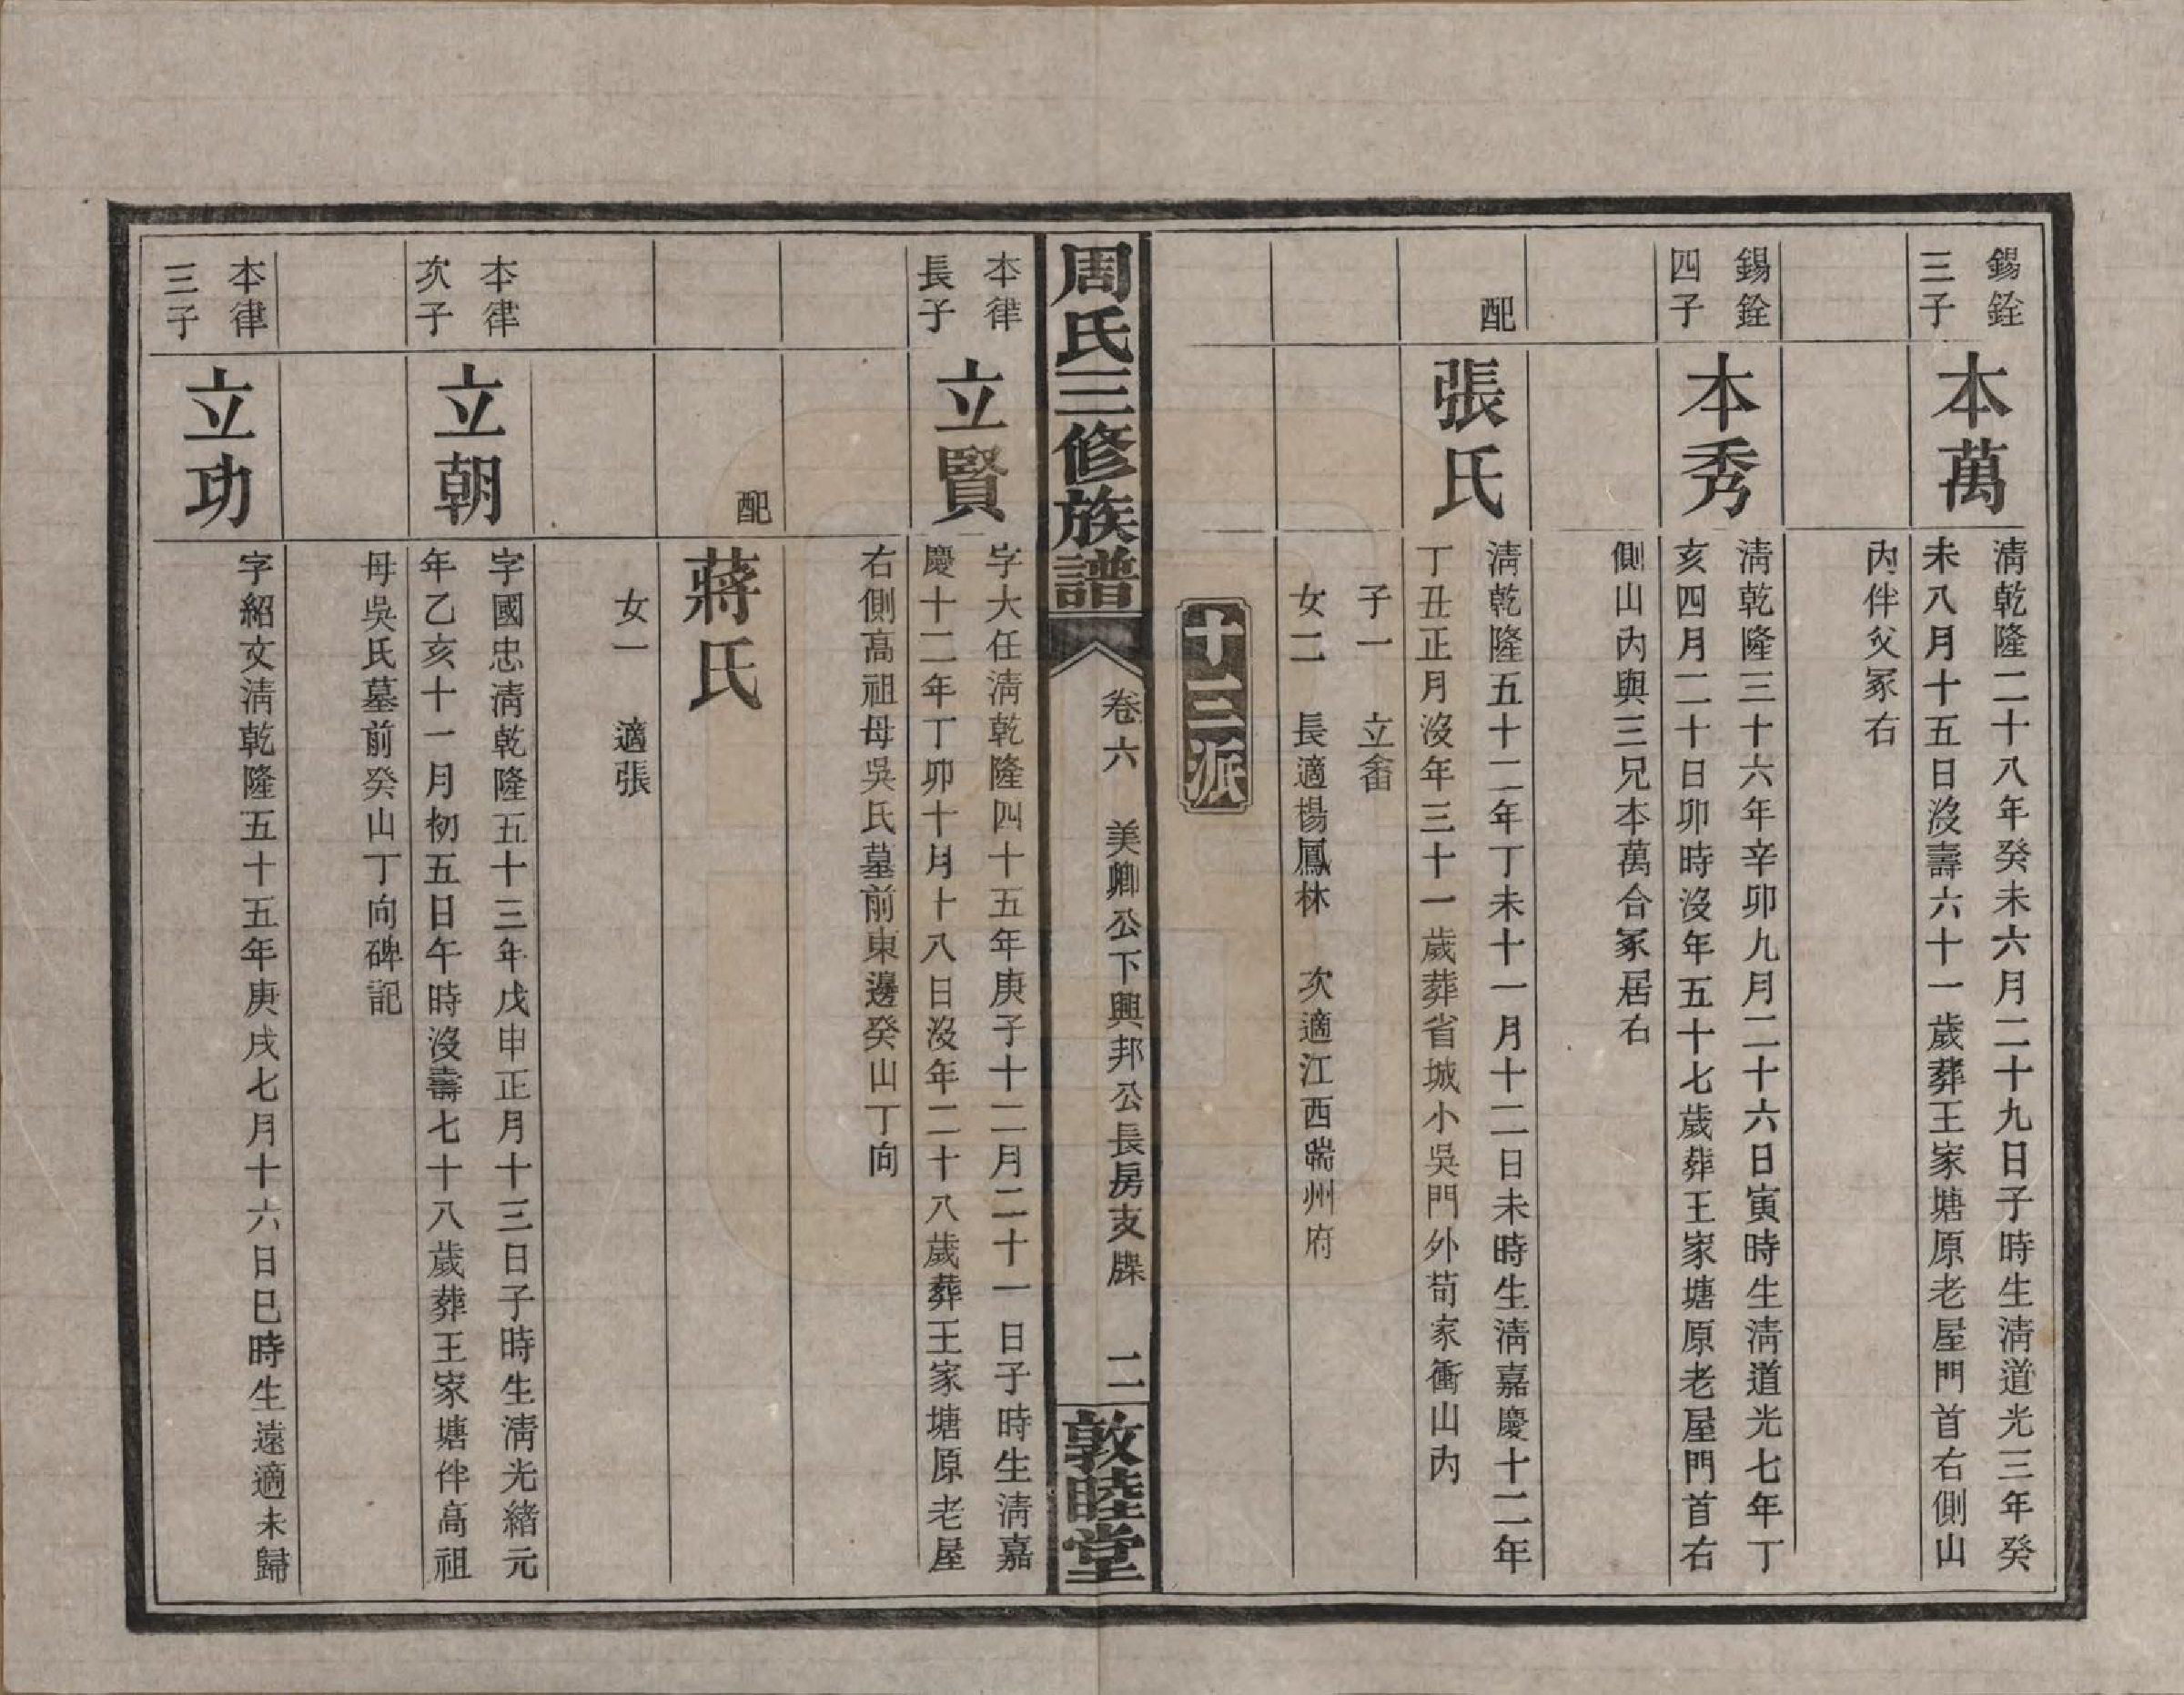 錫銓
三子
本萬
淸乾隆二十八年癸未六月二十九日子時生淸道光三年癸
未八月十五日沒壽六十一歲葬王家塘原老屋門首右側山
內伴父冢右
錫銓
四子
本秀
淸乾隆三十六年辛卯九月二十六日寅時生淸道光七年丁
亥四月二十日卯時沒年五十七歲葬王家塘原老屋門首右
側山內與三兄本萬合冢居右
配
張氏
淸乾隆五十二年丁未十一月十二日未時生淸嘉慶十二年
丁丑正月沒年三十一歲葬省城小吳門外苟家衝山內
子一 立畬
女二 長適楊鳳林 次適江西端州府
十三派
周氏三修族譜
卷六 美卿公下興邦公長房支牒 二
敦睦堂
本律
長子
立賢
字大任淸乾隆四十五年庚子十二月二十一日子時生淸嘉
慶十二年丁卯十月十八日沒年二十八歲葬王家塘原老屋
右側高祖母吳氏墓前東邊癸山丁向
配
蔣氏
女一 適張
本律
次子
立朝
字國忠淸乾隆五十三年戊申正月十三日子時生淸光緒元
年乙亥十一月初五日午時沒壽七十八歲葬王家塘伴高祖
母吳氏墓前癸山丁向碑記
本律
三子
立功
字紹文淸乾隆五十五年庚戌七月十六日巳時生遠適未歸